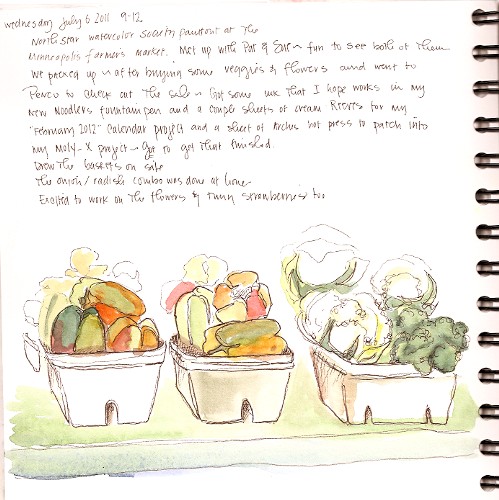 wednesday July 6 2011 9-12
North star watercolor society paintout at the
Minneapolis farmers market. Met up with Pat & Sue ~ fun to see both of them
we packed up ~ after buying some veggies & flowers and went to
Penco to check out the sale ~ Got some ink that I hope works in my
new Noodlers fountain pen and a couple sheets of cream Rieves for my
"February 2012" Calendar project and a sheet of Arches hot press to patch into
my Moly-X project ~ Got to get that finished.
Drew the baskets on site
The onion/radish combo was done at home
Excited to work on the flowers & tiny strawberries too